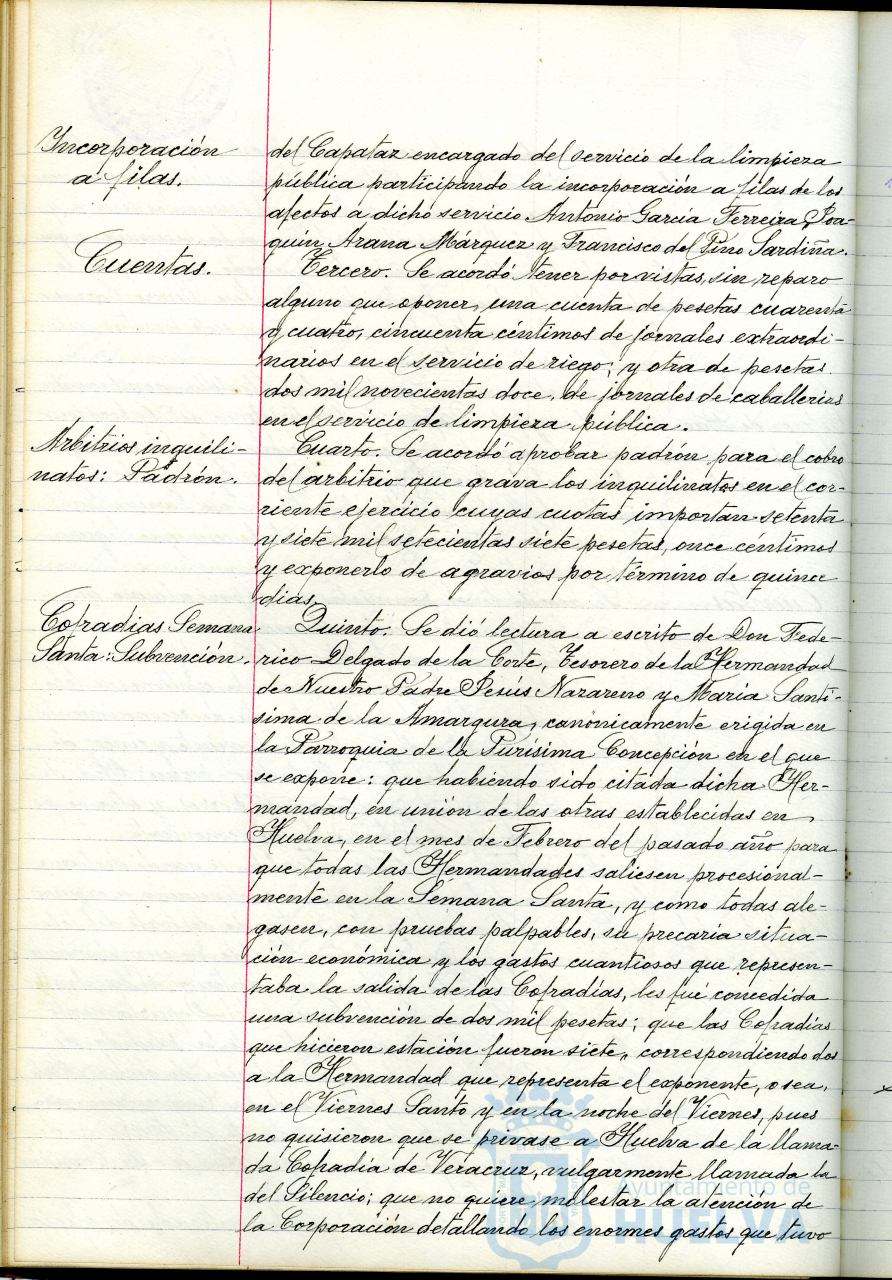 Incorporación
a filas.
del Capataz encargado del servicio de la limpieza
pública participando la incorporación a filas de los
afectos a dicho servicio Antonio García Ferreira, Joa-
quín Arana Márquez y Francisco del Pino Sardiña.
Cuentas.
Tercero. Se acordó tener por vistas, sin reparo
alguno que oponer, una cuenta de pesetas cuarenta
y cuatro, cincuenta céntimos de jornales extraordi-
narios en el servicio de riego; y otra de pesetas
dos mil novecientas doce, de jornales de caballerias
en el servicio de limpieza pública.
Arbitrios inquili-
natos: Padrón.
Cuarto. Se acordó aprobar padrón para el cobro
del arbitrio que grava los inquilinatos en el cor-
riente ejercicio cuyas cuotas importan setenta
y siete mil setecientas siete pesetas, once céntimos
y exponerlo de agravios por término de quince
dias.
Cofradias Semana
Santa: Subvención.
Quinto. Se dió lectura a escrito de Don Fede-
rico Delgado de la Corte, Tesorero de la Hermandad
de Nuestro Padre Jesús Nazareno y María Santí-
sima de la Amargura, canónicamente erigida en
la Parroquia de la Purísima Concepción en el que
se expone: que habiendo sido citada dicha Her-
mandad, en unión de las otras establecidas en
Huelva, en el mes de Febrero del pasado año para
que todas las Hermandades saliesen procesional-
mente en la Semana Santa, y como todas ale-
gasen, con pruebas palpables, su precaria situa-
ción económica y los gastos cuantiosos que represen-
taba la salida de las Cofradías, les fué concedida
una subvención de dos mil pesetas; que las Cofradias
que hicieron estación fueron siete, correspondiendo dos
a la Hermandad que representa el exponente, o sea,
en el Viernes Santo y en la noche del Viernes, pues
no quisieron que se privase a Huelva de la llama-
da Cofradia de Veracruz, vulgarmente llamada la
del Silencio; que no quiere molestar la atención de
la Corporación detallando los enormes gastos que tuvo
Ayuntamiento de
HUELVA